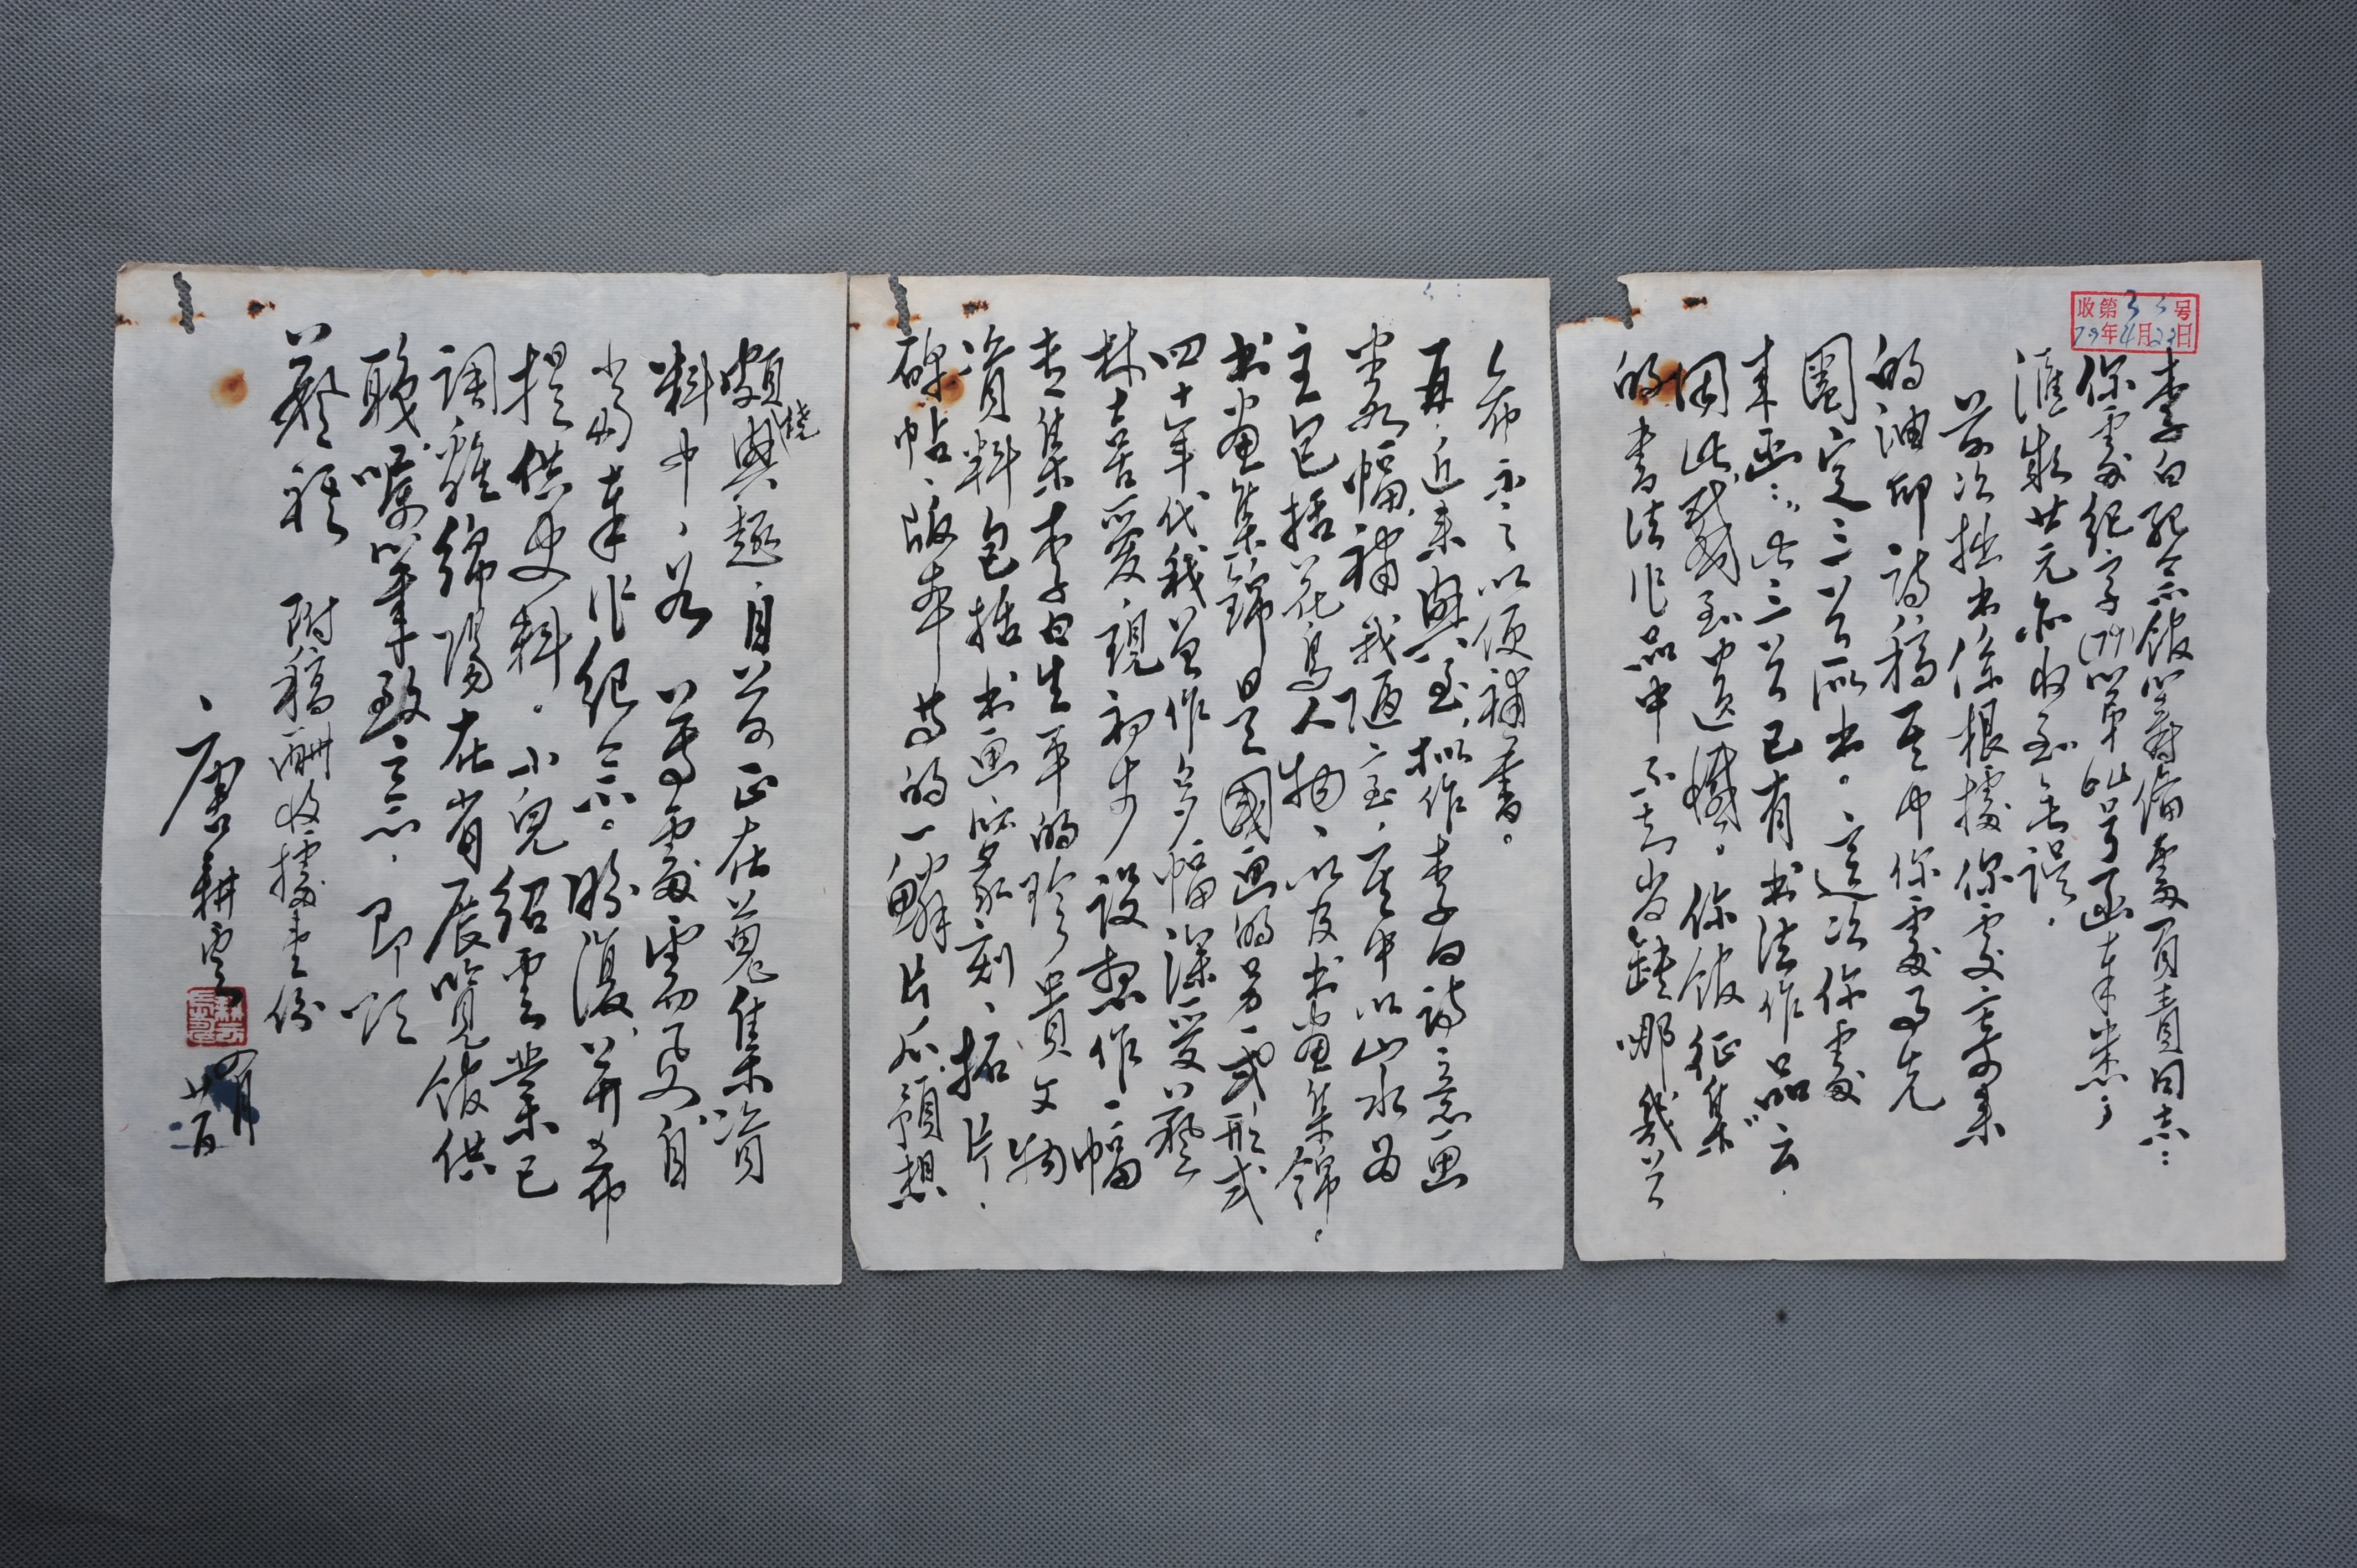 收第33号
79年4月23日
李白纪念馆筹备处负责同志：
你处纪字(79)第 号函奉悉，
汇款廿元亦收到无误。
前次拙书系根据你处寄来
的油印诗稿其中你处事先
圈定三首所书。这次你处
来函：“此三首已有书法作品云，
因此感到遗憾。你馆征集”
的书法作品中不知尚缺哪几首
希示之以便补书。
再，近来兴至，拟作李白诗意画
六幅，
主包括花鸟、人物、以及书画集锦。
书画集锦是国画的另一式形式
四十年代我曾作多幅深受艺
林古苦爱，现初步设想作一幅
李集李白生平的珍贵文物
资料包括书画 篆刻、拓片、
碑帖、版本等的一鳞片爪预想
颇饶兴趣，目前正在蒐集资
料中，若首 处需要，自
当奉作纪念。盼复，并希
提供史料。小儿绍云业已
调离绵阳在省展览馆供
职，嘱笔致意，即颂
艺祺 附稿酬收据壹份
唐耕云
四月
廿一日